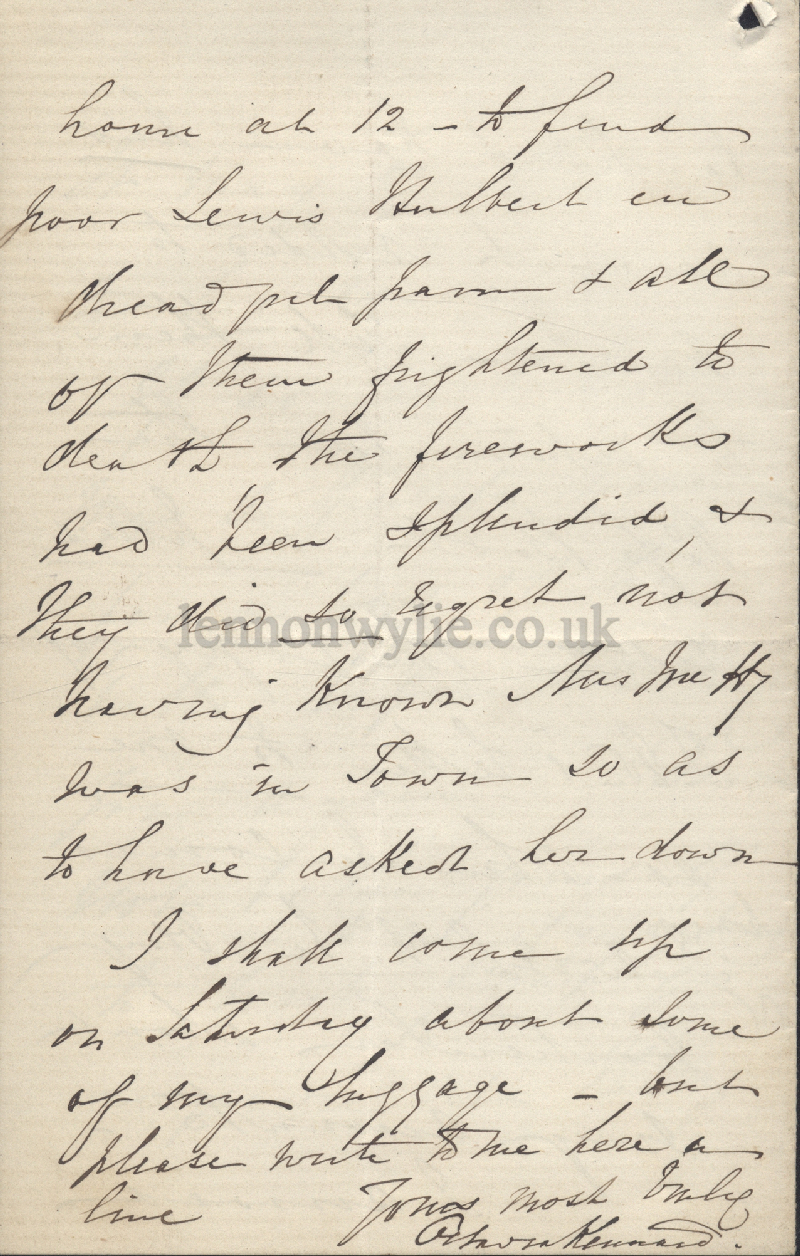 home at 12 - to find
poor Lewis Hulbert in
dreadful pain & all
of them frightened to
death the fireworks
had been splendid, &
they did so regret not
lennonwylie.co.uk
having known
was in Town so as
to have asked her down
I shall come up
on Saturday about some
of my luggage - but
please write to me here a
line Yours most truly
Octavia Kennard.